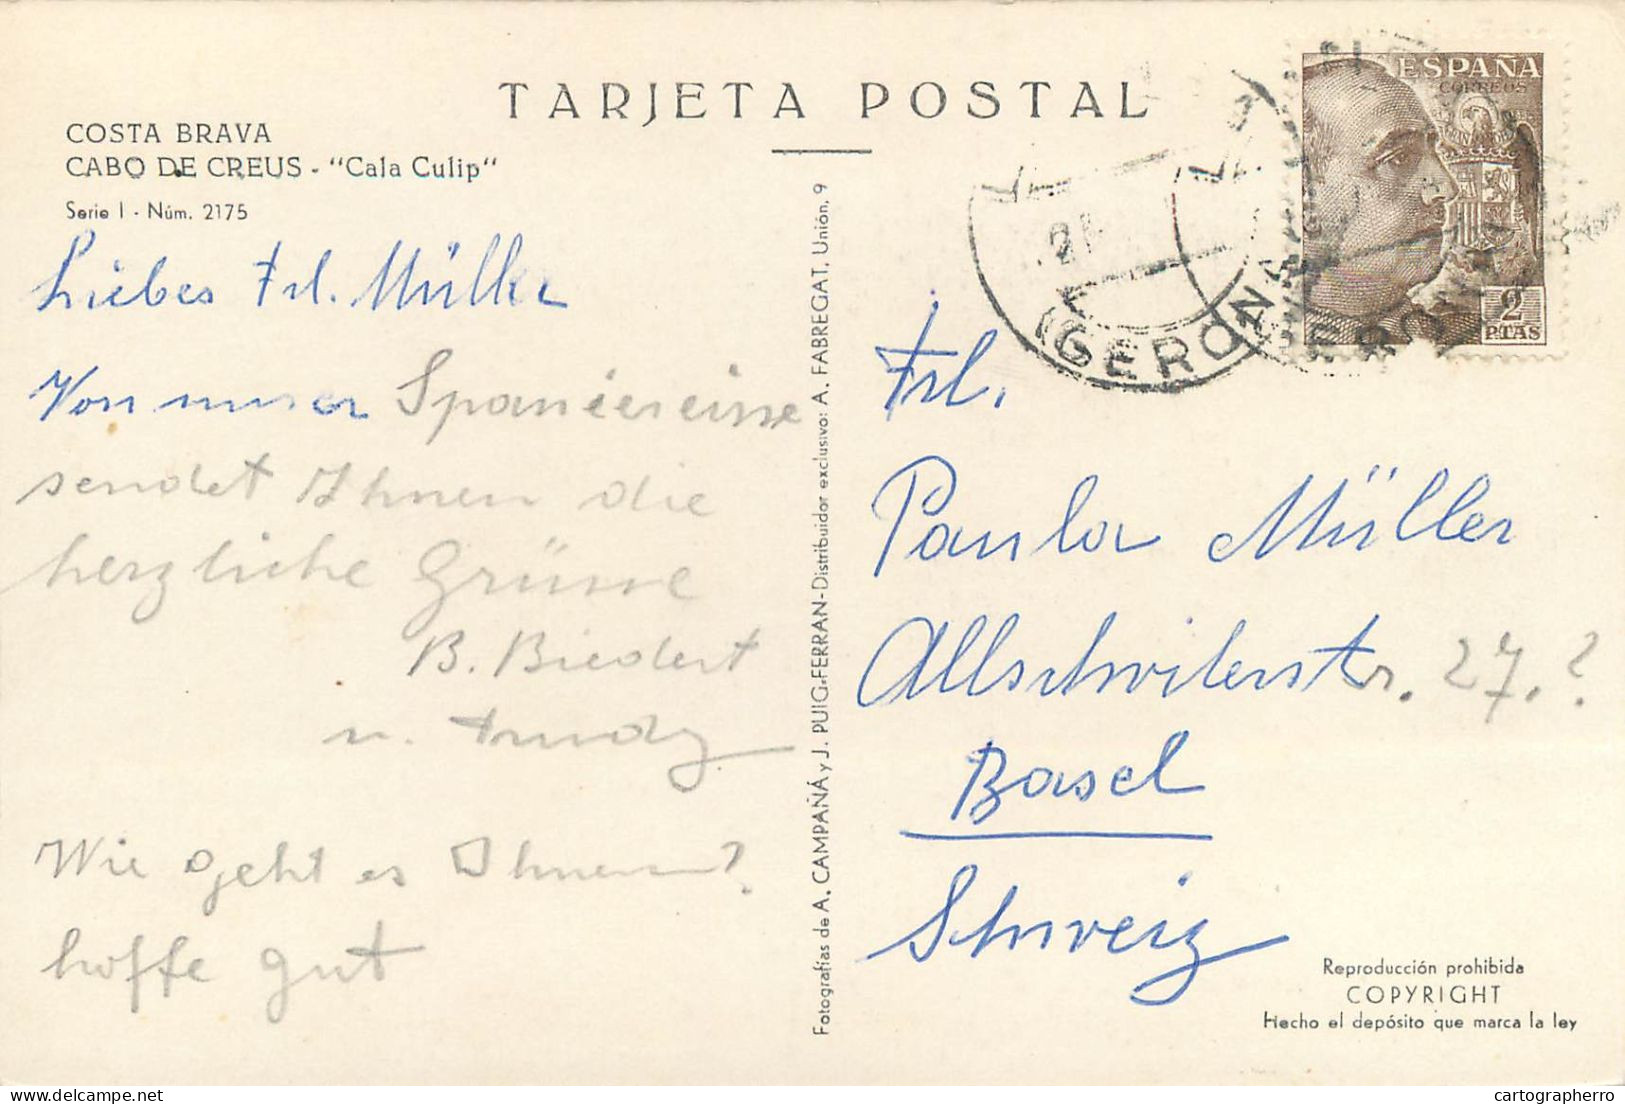 TARJETA POSTAL
COSTA BRAVA
CABO DE CREUS - "Cala Culip"
Serie I - Núm. 2175
Liebes Frl. Müller
Von unser Spanierreise
sendet Ihnen die
herzliche Grüsse
B. Biedert
u. Trudy
Wie geht es Ihnen?
hoffe gut
Fotografías de A. CAMPAÑÁ y J. PUIG-FERRAN-Distribuidor exclusivo: A. FABREGAT. Unión, 9
ESPAÑA
CORREOS
2
PTAS
(GERONA)
Frl.
Paula Müller
Allschwilerstr. 27.?
Basel
Schweiz
Reproducción prohibida
COPYRIGHT
Hecho el depósito que marca la ley
cartographerro